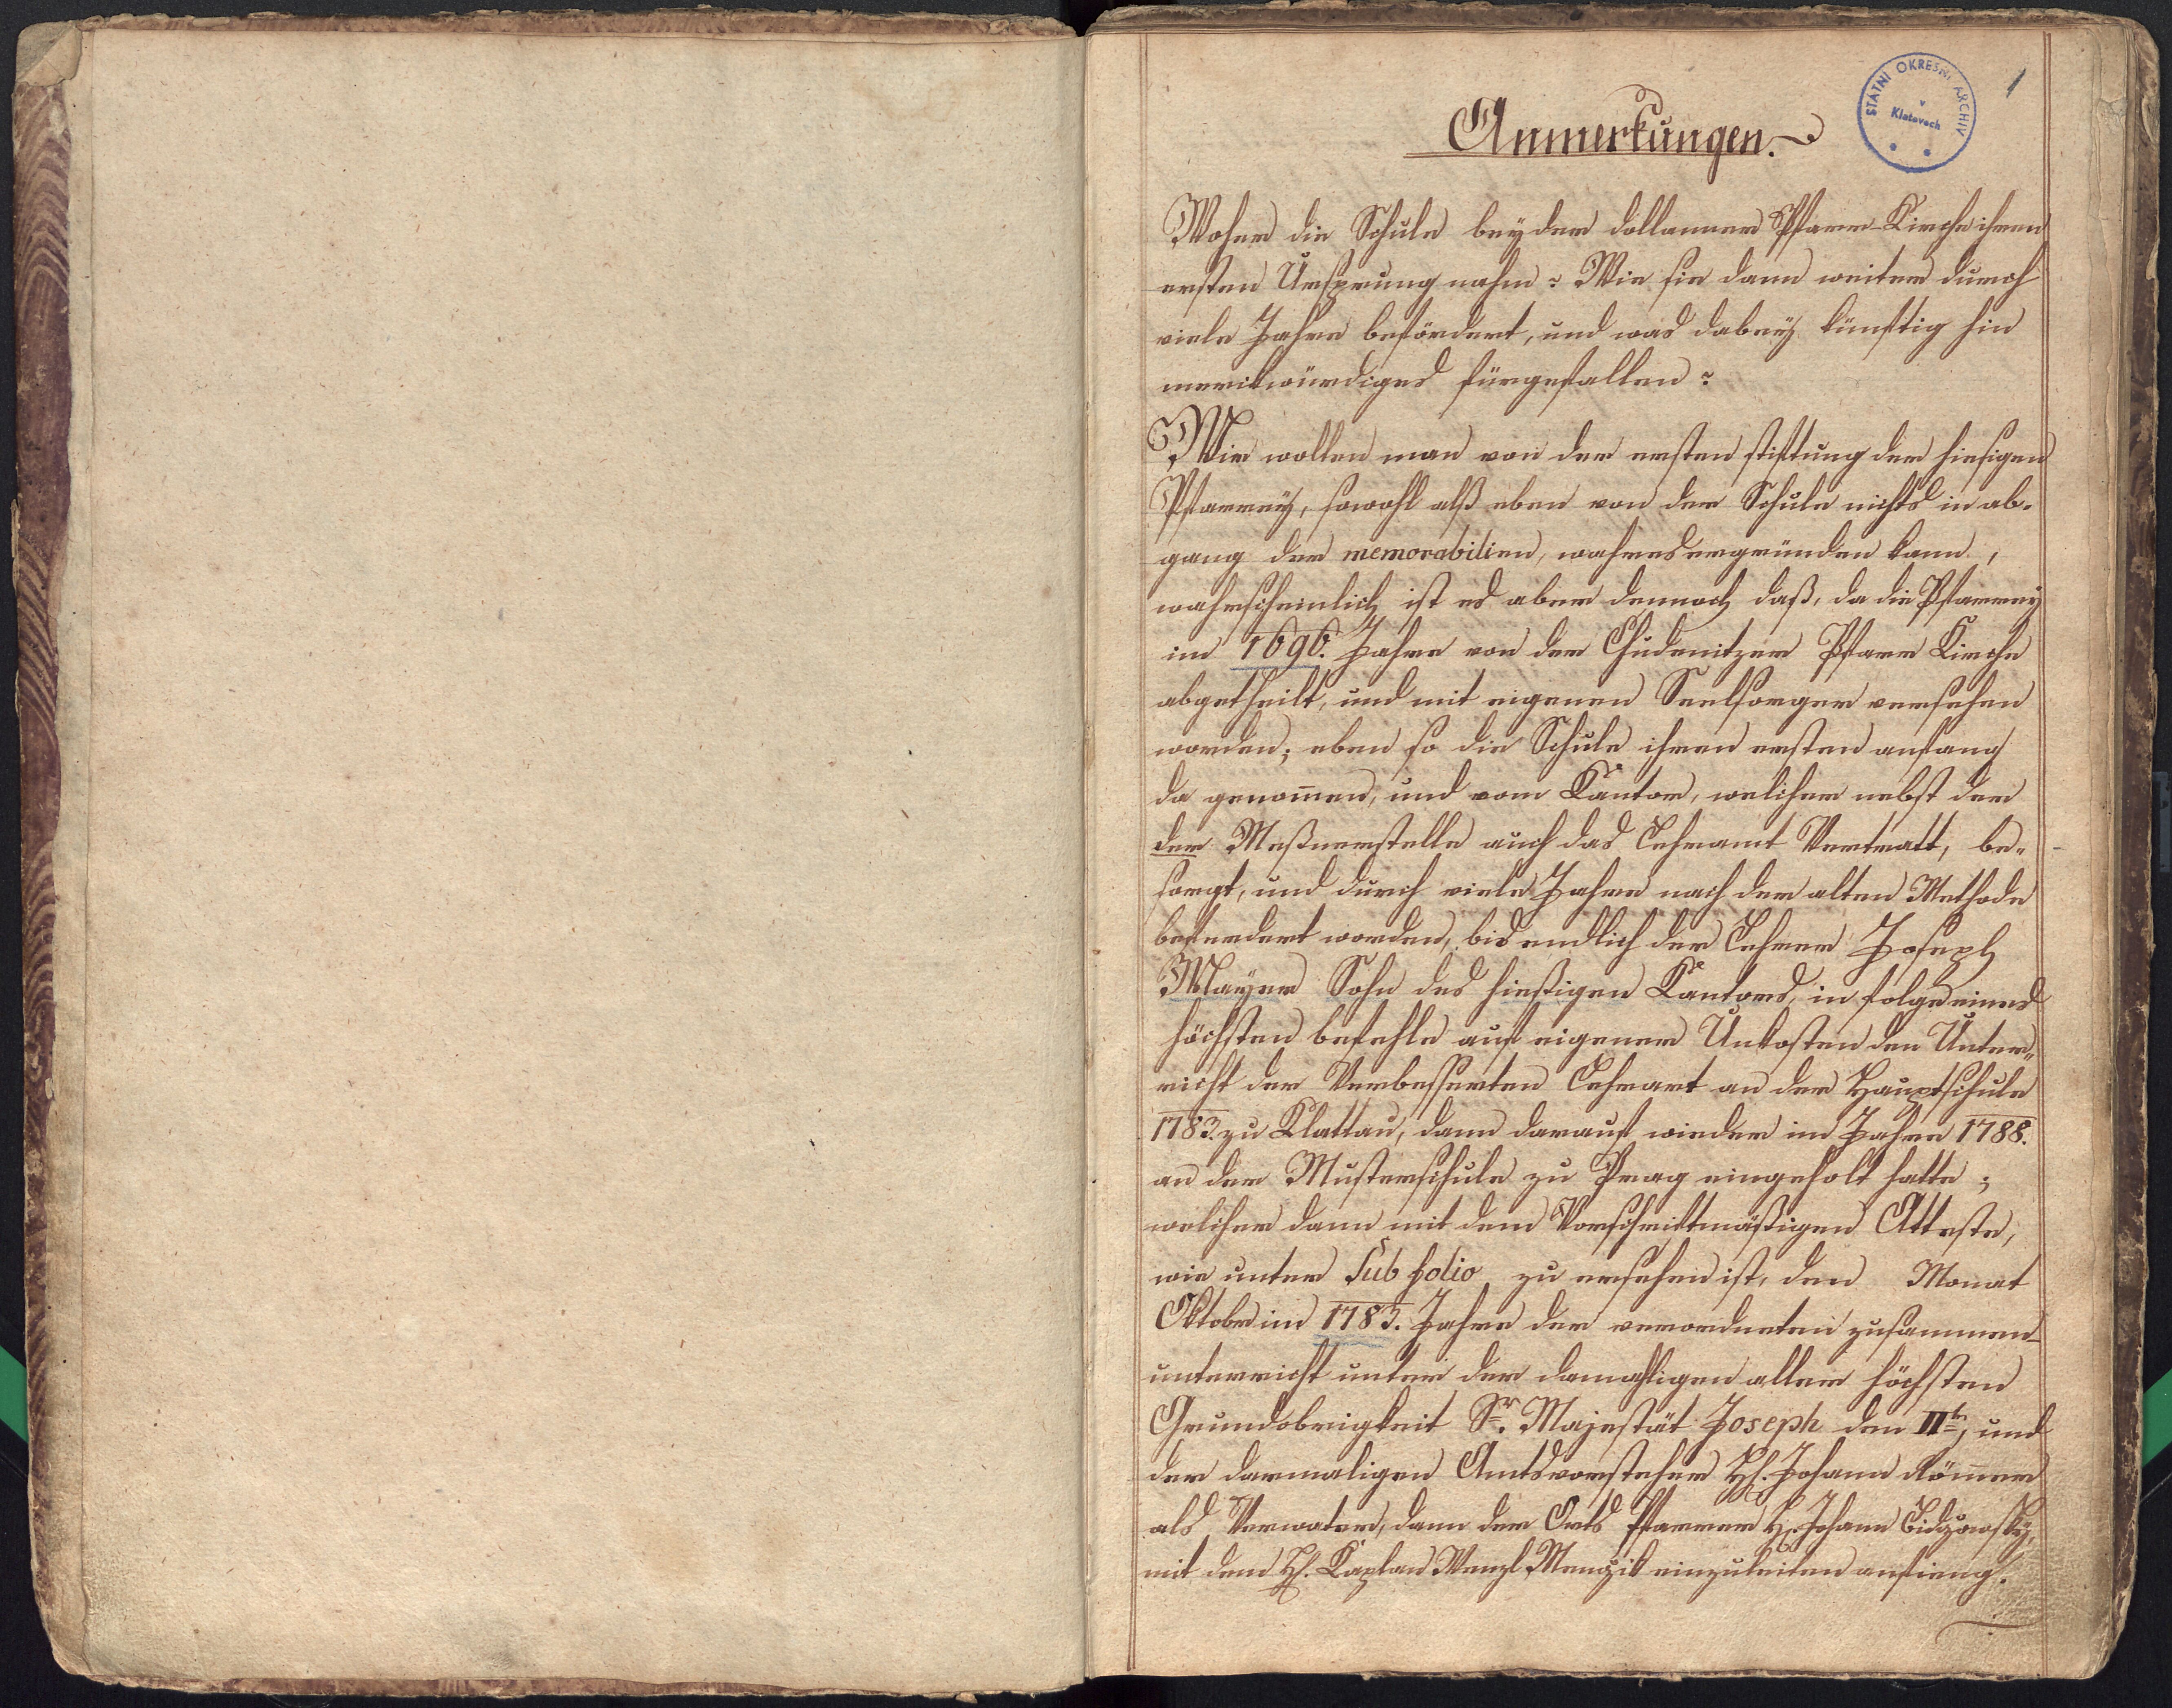 1
STÁTNÍ OKRESNÍ ARCHIV
v
Klatovech
Anmerkungen.
Woher die Schule bey der dollanner Pfarr-Kirche ihren
ersten Ursprung nahm? Wie sie dann weiter durch
viele Jahre befördert, und was dabey künftig hin
merikwürdiges fürgefallen?
Wir wollen man von der ersten stiftung der hiesigen
Pfarrey, sowohl alß eben von der Schule nichts in ab-
gang der memorabilien, wahres ergründen kann,
wahrscheinlich ist es aber dennoch daß, da die Pfarrey
im 1696. Jahre von der Chudenitzer Pfarr Kirche
abgetheilt, und mit eigenen Seelsorger versehen
worden; eben so die Schule ihren ersten anfang
da genom̄en, und vom Kantor, welicher nebst der
der Meßnerstelle auch das Lehramt Vertratt, be-
sorgt, und durch viele Jahre nach der alten Methode
beferdert worden, bis endlich der Lehrer Joseph
Mayer Sohn des hießigen Kantors, in folge eines
höchsten befehls auf eigener Unkosten den Unter-
richt der Verbesserten Lehrart an der Hauptschule
1783. zu Klattau, dann darauf wieder im Jahre 1788.
an der Musterschule zu Prag eingeholt hatte;
welicher dann mit dem Vorschriftmäßigen Atteste,
wie unter Sub folio zu ersehen ist, den Monat
Oktober im 1783. Jahre der verordneten zusammen-
unterricht unter der damahligen aller höchsten
Grundobrigkeit Sr. Majestät Joseph den IIten, und
der darmaligen Amtsvorsteher H. Johann Röm̄er
als Verwater, dann der Orts Pfarrer H. Johann Bidzowsky,
mit dem H. Kaplan Wenzl Menzik einzuleiten anfieng.